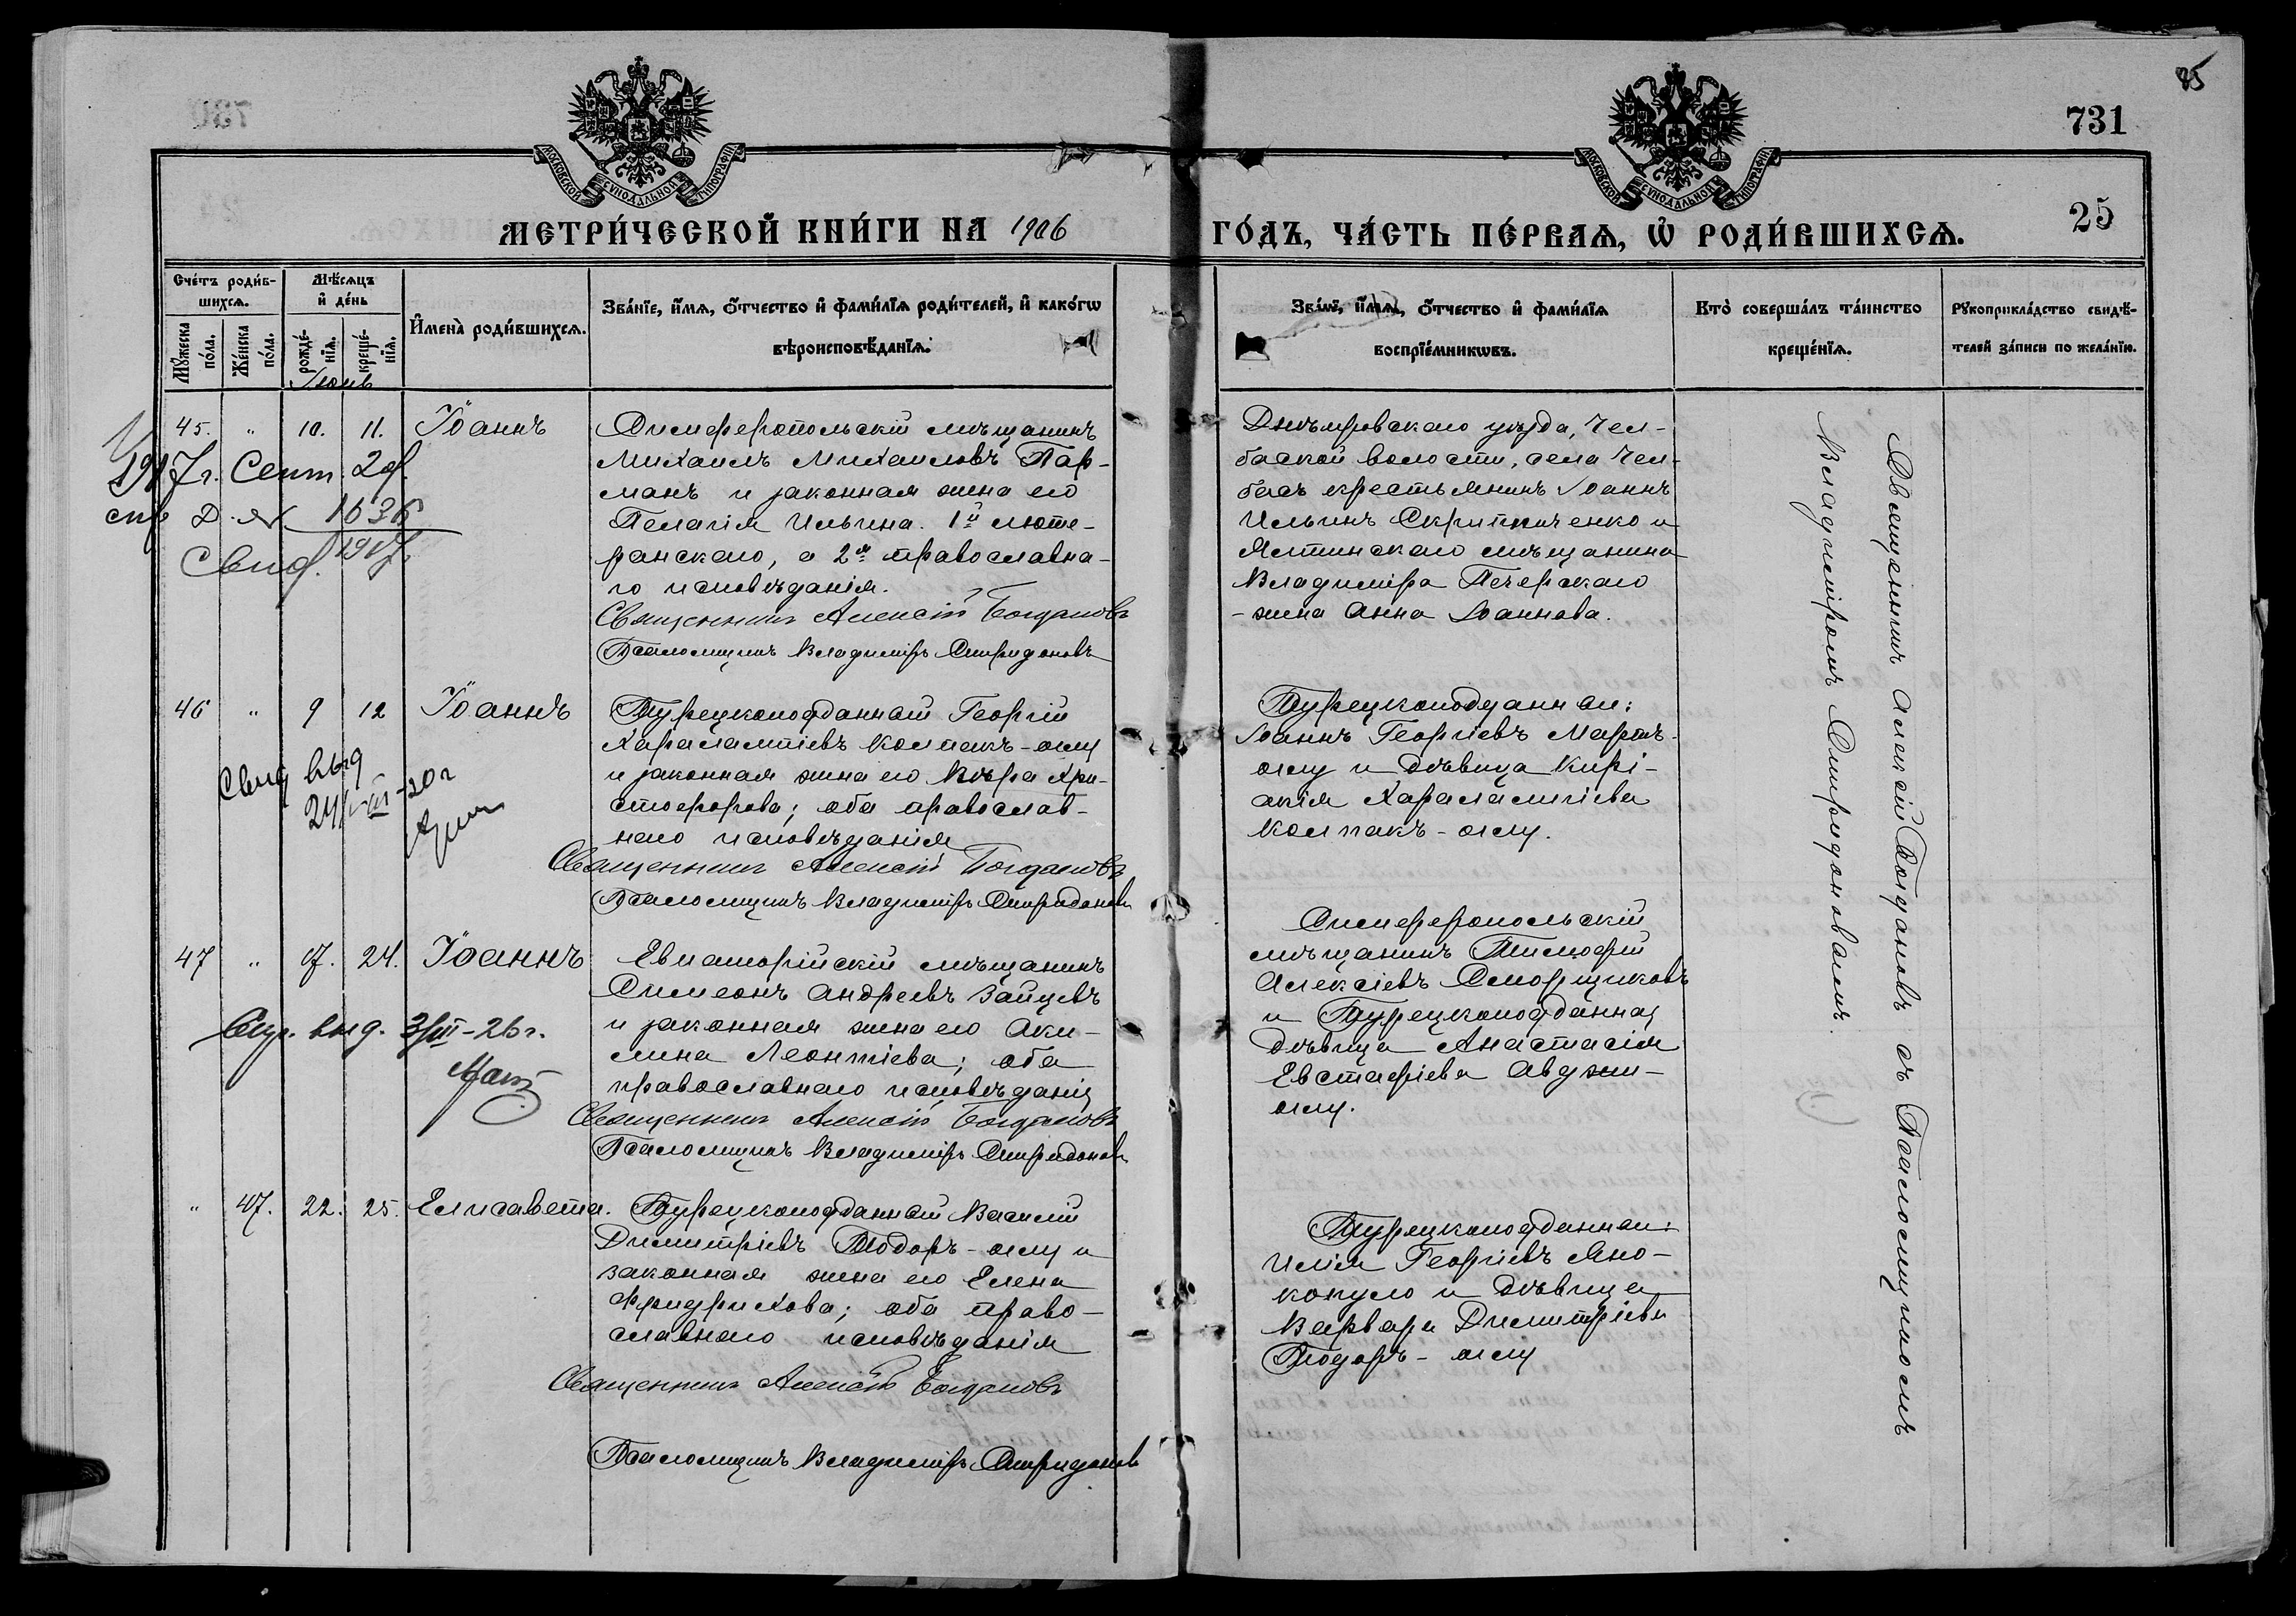 85
731
25
МОСКОВСКОЙ СѴНОДАЛЬНОЙ ТИПОГРАФІИ
МОСКОВСКОЙ СѴНОДАЛЬНОЙ ТИПОГРАФІИ
МЕТРИ́ЧЕСКОЙ КНИ́ГИ НА 1906 ГО́ДЪ, ЧА́СТЬ ПЕ́РВАѦ, Ѡ҆ РОДИ́ВШИХСѦ.
Счéтъ роди́в-
шихсѧ.
Мꙋжеска по́ла.
Же́нска по́ла.
Мѣ́сѧцъ
и҆ де́нь
рожде́-нїѧ.
креще́-нїѧ.
И҆мена̀ роди́вшихсѧ.
Зва́нїе, и҆́мѧ, ѻ҆́тчество и҆ фами́лїѧ роди́телей, и҆ како́гѡ
вѣроисповѣ́данїѧ.
Зва́нїе, и҆́мѧ, ѻ҆́тчество и҆ фами́лїѧ
воспрїе́мникѡвъ.
Кто̀ соверша́лъ та́инство
креще́нїѧ.
Рꙋкоприкла́дство свидѣ́-
телей за́писи по жела́нїю.
Іюнь
45. " 10. 11. Іоаннъ
Симферопольскій мѣщанинъ
Михаилъ Михаиловъ Пар-
манъ и законная жена его
Пелагія Ильина. 1й люте-
ранскаго, а 2я православна-
го исповѣданія.
Священникъ Алексій Богдановъ
Псаломщикъ Владиміръ Спиридоновъ
Днѣпровскаго уѣзда, Чел-
баской волости, села Чел-
басъ крестьянинъ Іоаннъ
Ильинъ Скрипниченко и
Ялтинскаго мѣщанина
Владиміра Печерскаго
-жена Анна Іоаннова.
1917г. Сент. 2
1636
Свид. 1917
46 " 9 12 Іоаннъ
Турецкоподданный Георгій
Харалампіевъ Колпакъ-оглу
и законная жена его Вѣра Хри-
стофорова; оба православ-
наго исповѣданія
Священникъ Алексій Богдановъ
Псаломщикъ Владиміръ Спиридоновъ
Турецкоподданные:
Іоаннъ Георгіевъ Мартъ-
оглу и дѣвица Кирі-
акія Харалампіева
Колпакъ-оглу.
Свид выд
24/VIII-20г
47 " 17. 24. Іоаннъ
Евпаторійскій мѣщанинъ
Симеонъ Андреевъ Зайцевъ
и законная жена его Аки-
лина Леонтіева; оба
православнаго исповѣданія
Священникъ Алексій Богдановъ
Псаломщикъ Владиміръ Спиридоновъ
Симферопольскій
мѣщанинъ Тимофей
Алексіевъ Сморщиковъ
и Турецкоподданная
дѣвица Анастасія
Евстафіева Авджи-
оглу.
выд. 3/III-26г.
" 47. 22. 25. Елисавета.
Турецкоподданный Василій
Димитріевъ Тодоръ-оглу и
законная жена его Елена
Фридрихова; оба право-
славнаго исповѣданія
Священникъ Алексій Богдановъ
Псаломщикъ Владиміръ Спиридоновъ
Турецкоподданные:
Илія Георгіевъ Яно-
копуло и дѣвица
Варвара Димитріева
Тодоръ-оглу
Священникъ Алексій Богдановъ съ Псаломщикомъ
Владиміромъ Спиридоновымъ.